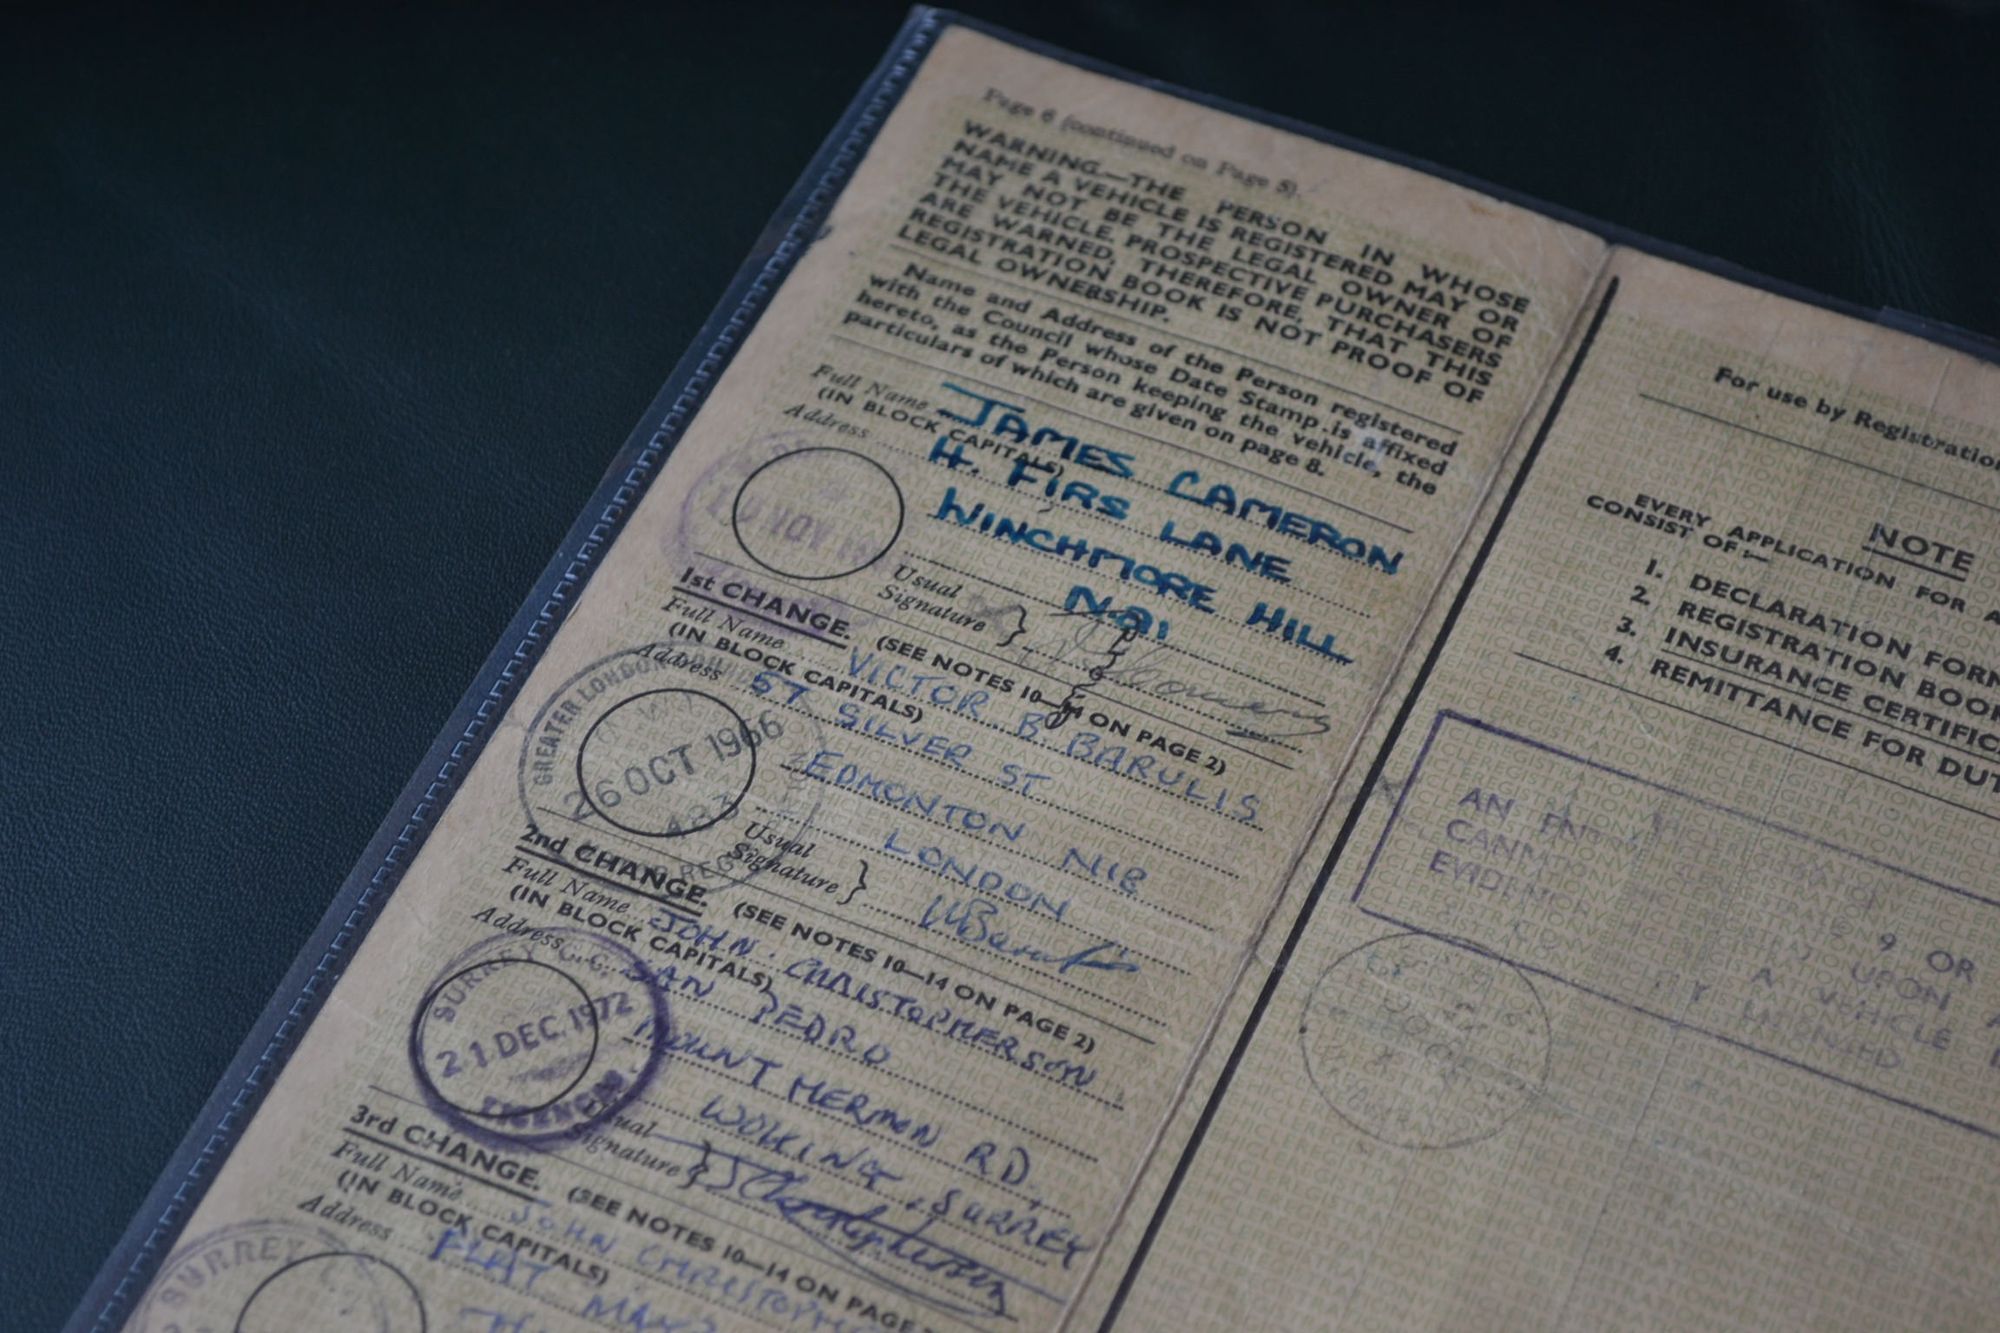 Page 6 (continued on Page 5).
WARNING—THE PERSON IN WHOSE
NAME A VEHICLE IS REGISTERED MAY OR
MAY NOT BE THE LEGAL OWNER OF
THE VEHICLE. PROSPECTIVE PURCHASERS
ARE WARNED, THEREFORE, THAT THIS
REGISTRATION BOOK IS NOT PROOF OF
LEGAL OWNERSHIP.
Name and Address of the Person registered
with the Council whose Date Stamp is affixed
hereto, as the Person keeping the vehicle, the
particulars of which are given on page 8.
Full Name JAMES CAMERON
(IN BLOCK CAPITALS)
Address FIRS LANE
WINCHMORE HILL
NOV
Usual
Signature
1st CHANGE. (SEE NOTES 10—14 ON PAGE 2)
Full Name VICTOR B BARULIS
(IN BLOCK CAPITALS)
Address 57 SILVER ST
EDMONTON N18
LONDON
GREATER LONDON
26 OCT 1966
Usual
Signature
2nd CHANGE. (SEE NOTES 10—14 ON PAGE 2)
Full Name JOHN. CHRISTOPHERSON
(IN BLOCK CAPITALS)
Address SAN PEDRO
MOUNT HERMON RD,
WOKING, SURREY
SURREY C.C.
21 DEC. 1972
Usual
Signature
3rd CHANGE. (SEE NOTES 10—14 ON PAGE
Full Name JOHN
(IN BLOCK CAPITALS)
Address FLAT
SURREY
For use by Registration
NOTE
EVERY APPLICATION FOR A
CONSIST OF:—
1. DECLARATION FORM
2. REGISTRATION BOOK
3. INSURANCE CERTIFICA
4. REMITTANCE FOR DUT
AN
9 OR
UPON
A VEHICLE